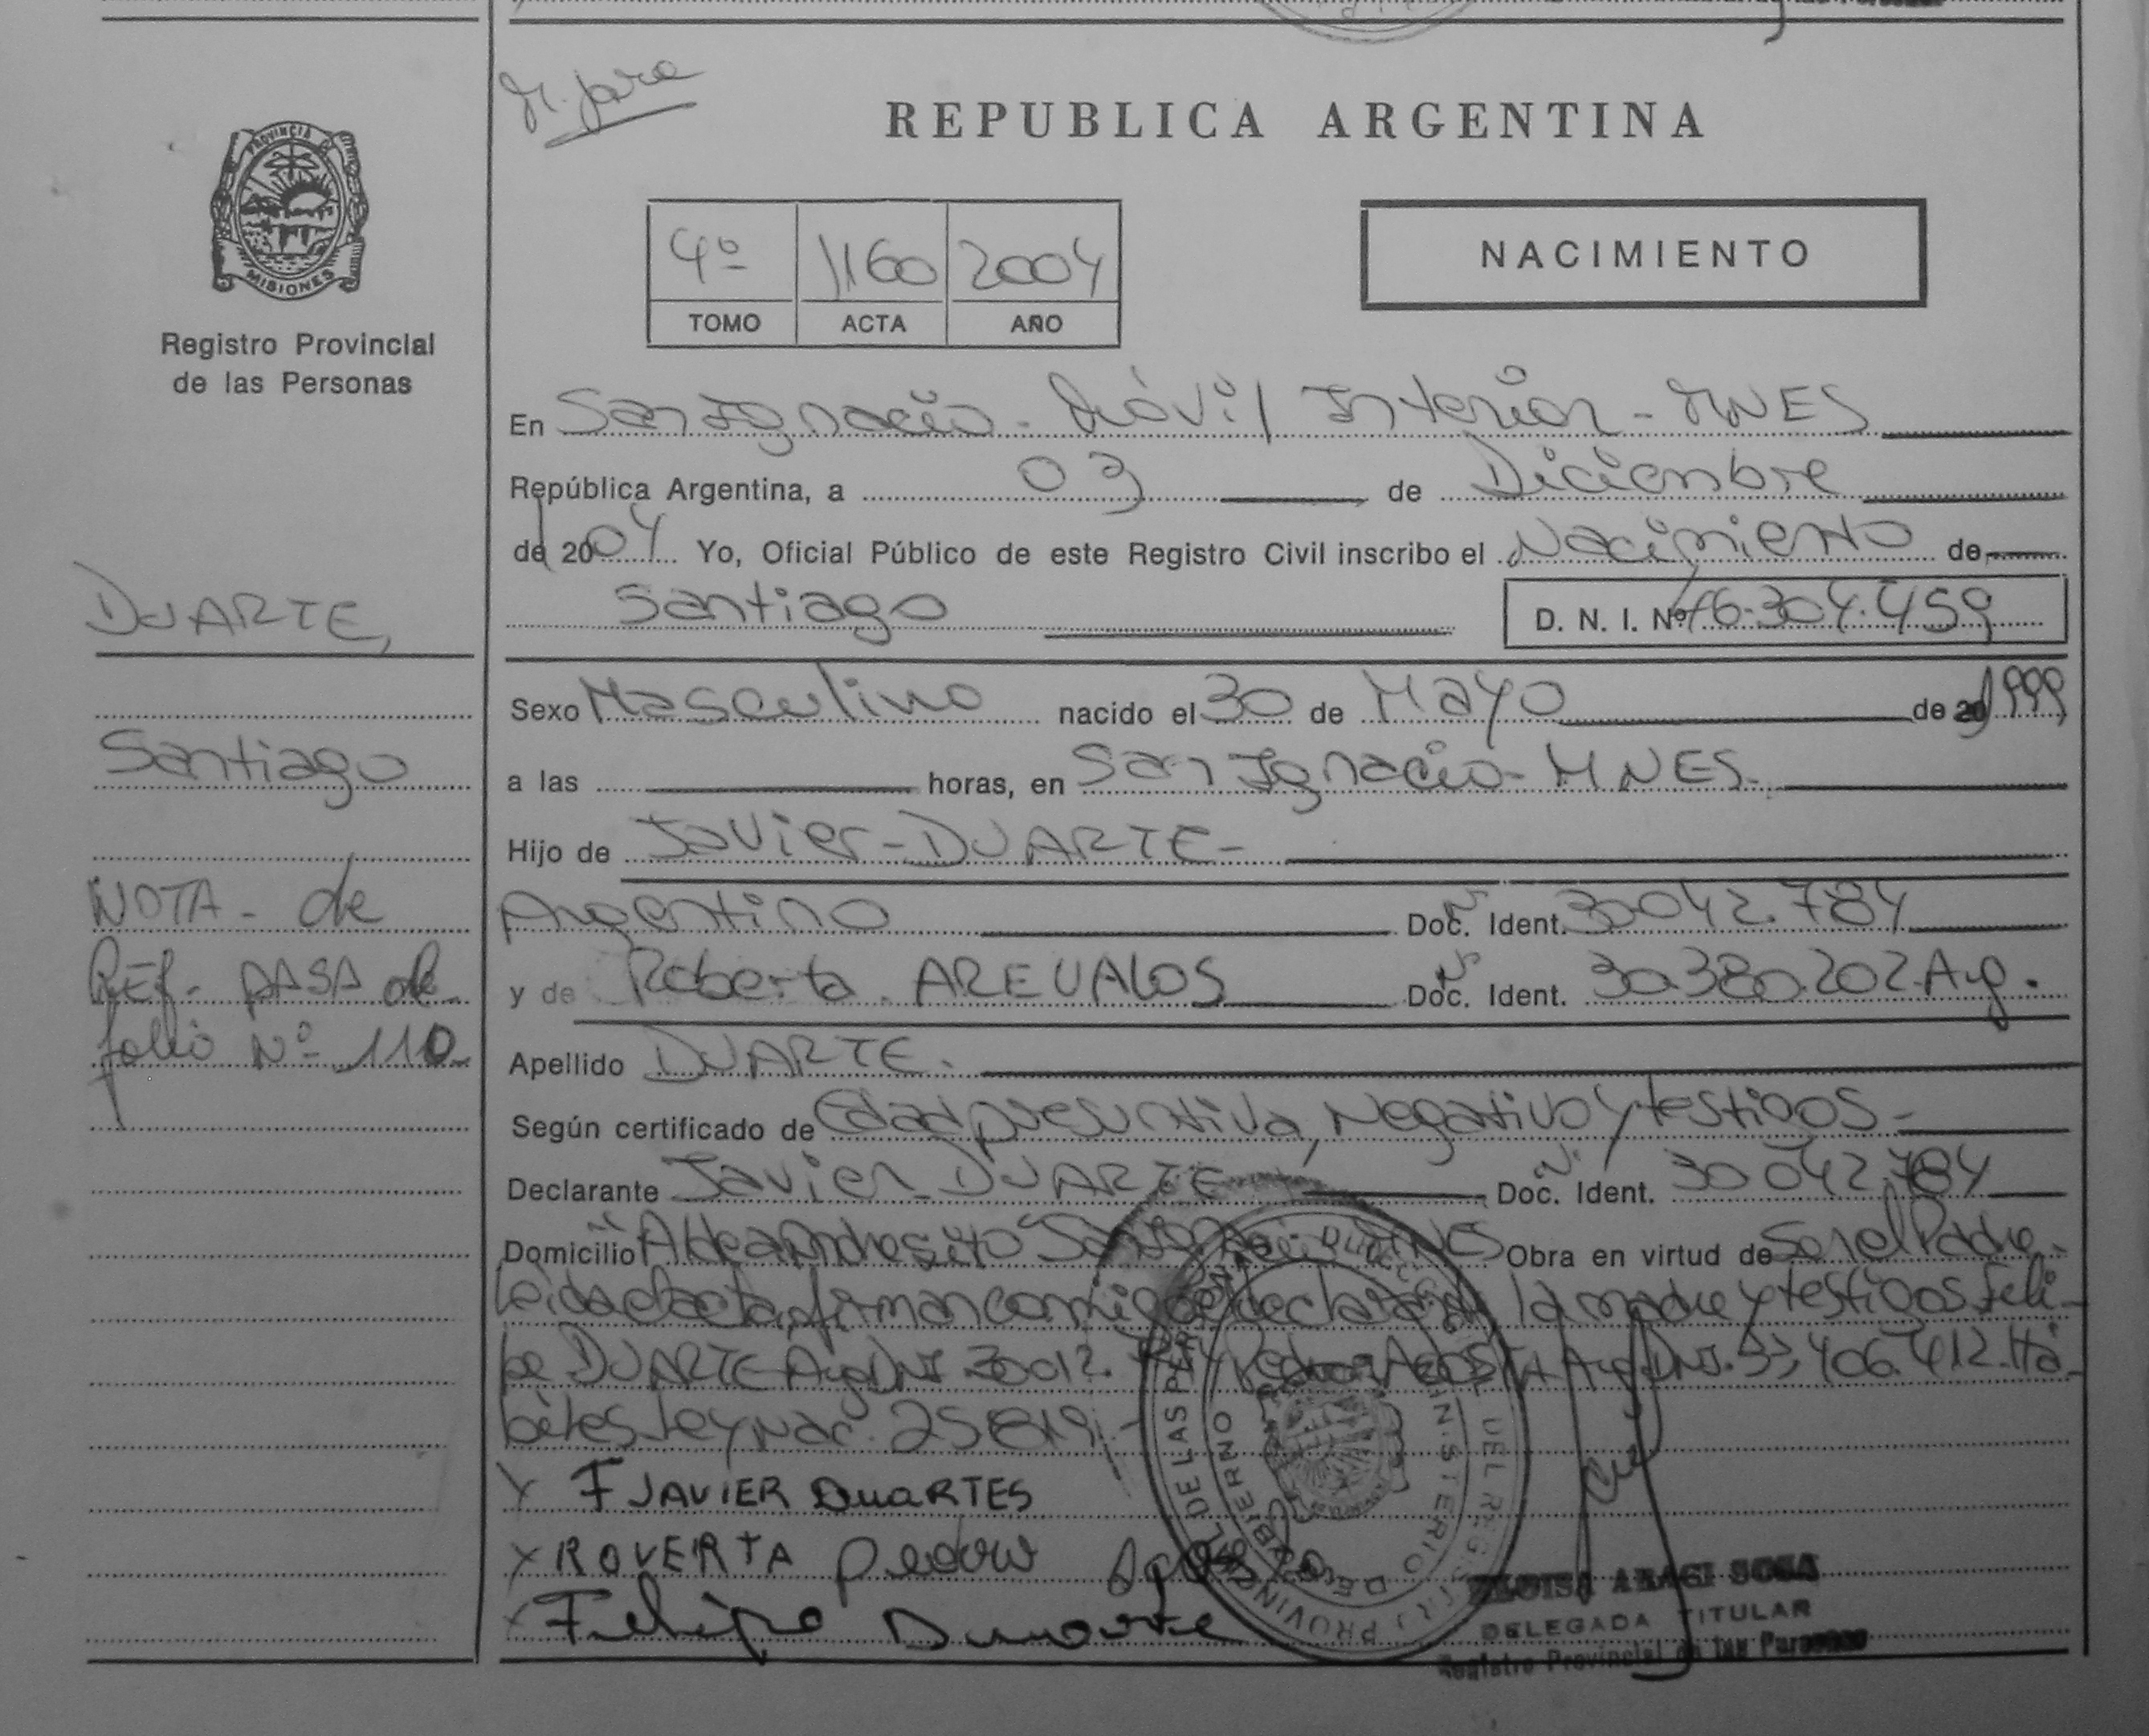 REPUBLICA ARGENTINA
PROVINCIA DE
MISIONES
Registro Provincial
de las Personas
4º 1160 2004
TOMO ACTA AÑO
NACIMIENTO
En San Ignacio - Móvil Interior - MNES
República Argentina, a 03 de Diciembre
del 2004 Yo, Oficial Público de este Registro Civil inscribo el Nacimiento de
Santiago D. N. I. Nº 46.304.459
DUARTE,
Santiago
NOTA - de
REf. PASA al
folio Nº 110
Sexo Masculino nacido el 30 de Mayo de 1999
a las horas, en San Ignacio - MNES.
Hijo de Javier - DUARTE -
Argentino Doc. Ident. Nº 30042.784
y de Roberta AREVALOS Doc. Ident. Nº 30.380.202 Arg.
Apellido DUARTE.
Según certificado de Edad presuntiva, Negativo y testigos -
Declarante Javier - DUARTE Doc. Ident. Nº 30042.784
Domicilio Aldea Andresito San Ignacio MNES Obra en virtud de Ser el Padre -
Leida el acta, firman conmigo el declarante la madre y testigos Feli-
pe DUARTE Arg DNI 30012. Pedro ACOSTA Arg. DNI. 33.406.412. Há-
biles. Ley Nac. 25819. -
X F JAVIER DuaRTES
X ROVERTA pedro
X Felipe Duarte
DELEGADA TITULAR
Registro Provincial de las Personas